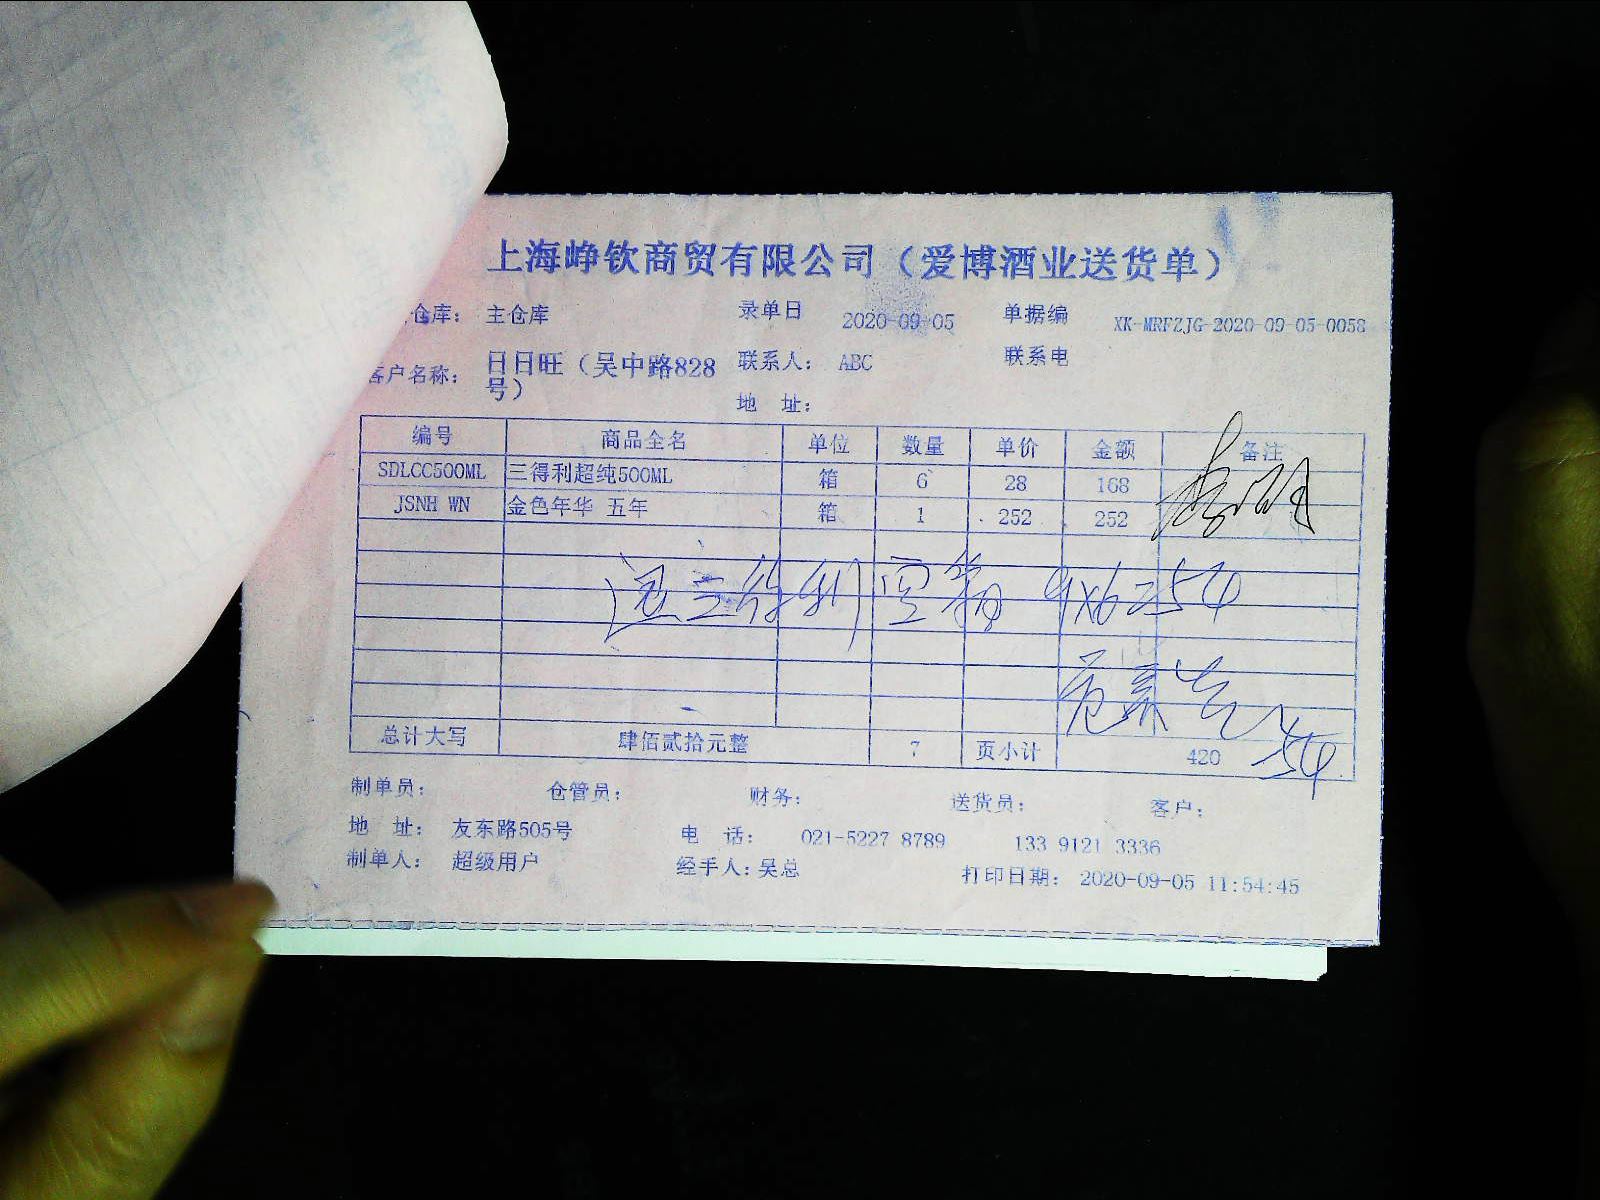 上海峥钦商贸有限公司（爱博酒业送货单）
仓库： 主仓库 录单日 2020-09-05 单据编 XK-MRFZJG-2020-09-05-0058
客户名称： 日日旺（吴中路828号） 联系人： ABC 联系电
地 址：
编号 商品全名 单位 数量 单价 金额 备注
SDLCC500ML 三得利超纯500ML 箱 6 28 168
JSNH WN 金色年华 五年 箱 1 252 252
退三得利空箱 9x6=54
总计大写 肆佰贰拾元整 7 页小计 420 54
制单员： 仓管员： 财务： 送货员： 客户：
地 址： 友东路505号 电 话： 021-5227 8789 133 9121 3336
制单人： 超级用户 经手人：吴总 打印日期： 2020-09-05 11:54:45